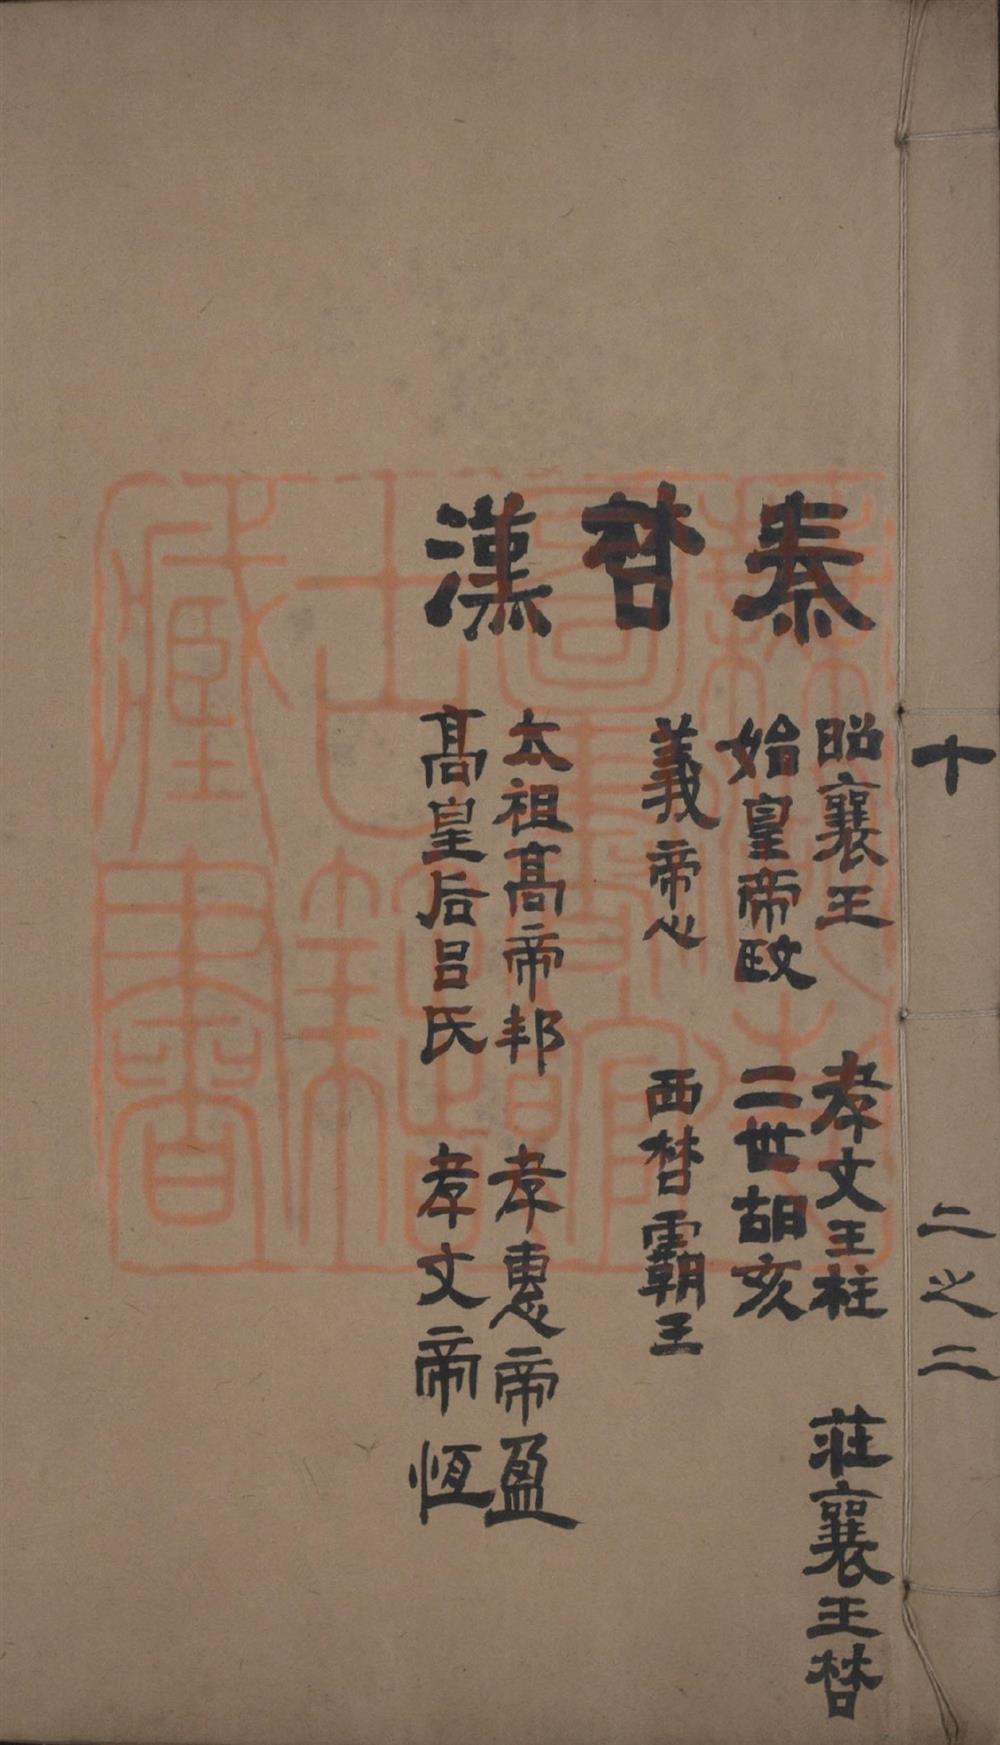 十　二之二
秦
昭襄王　孝文王柱　莊襄王楚
始皇帝政　二世胡亥
楚
義帝心　西楚霸王
漢
太祖高帝邦　孝惠帝盈
高皇后呂氏　孝文帝恆
圖書館
古籍
藏書